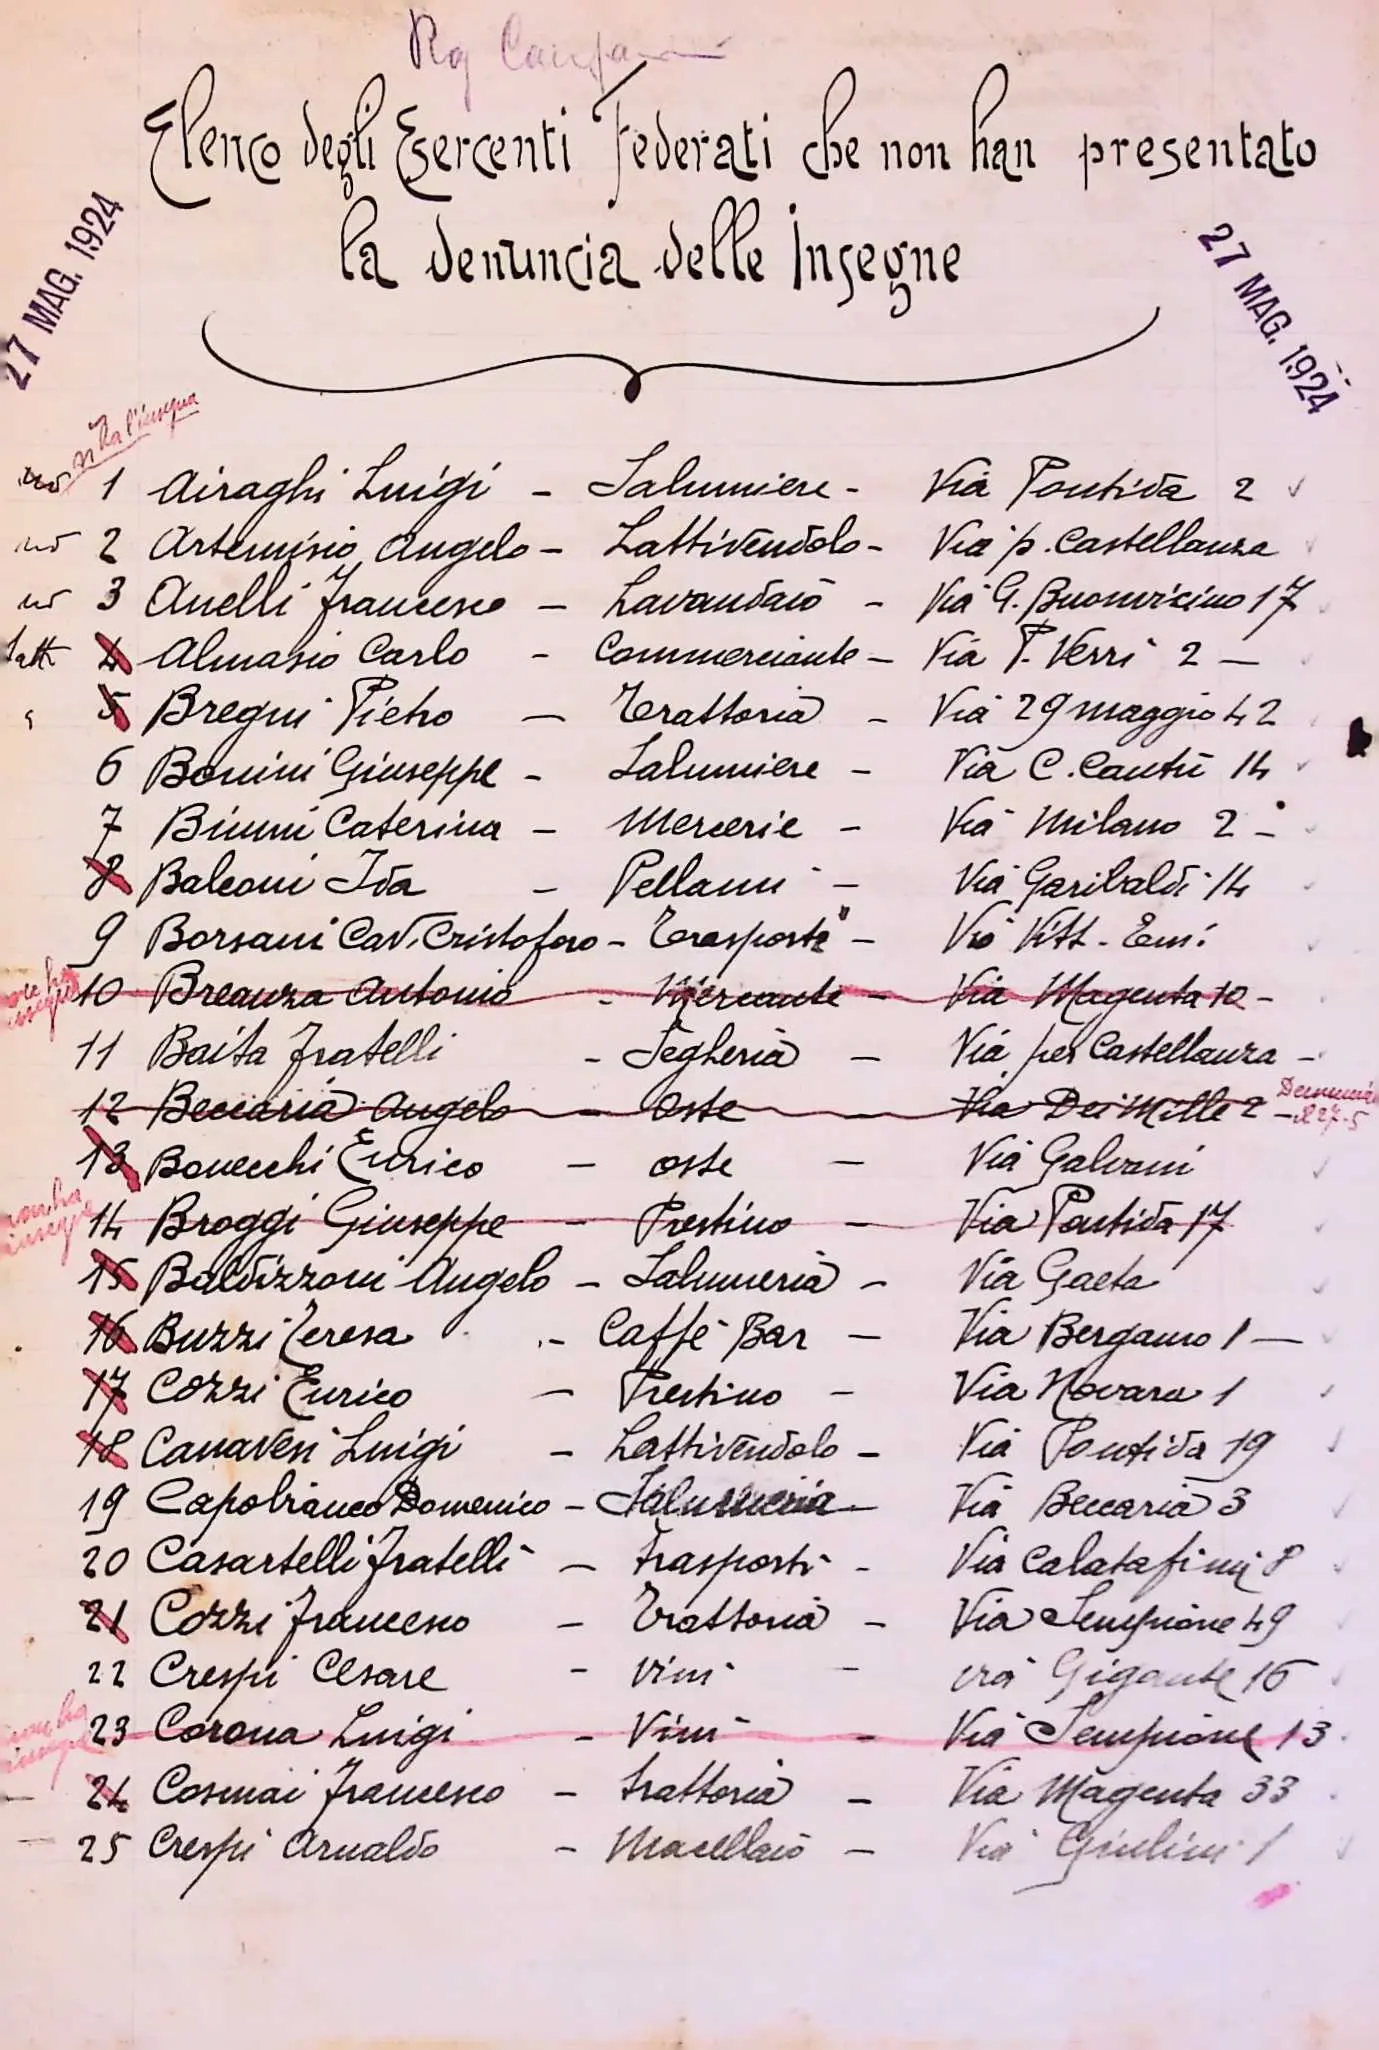 Elenco degli Esercenti Federati che non han presentato
la denuncia delle Insegne
27 MAG. 1924
27 MAG. 1924
no 1 Airaghi Luigi - Salumiere - Via Pontida 2
no 2 Artemisio Angelo - Lattivendolo - Via p. Castellanza
no 3 Anelli Francesco - Lavandaio - Via G. Buonvicino 17
4 Almasio Carlo - Commerciante - Via P. Verri 2 -
5 Bregni Pietro - Trattoria - Via 29 maggio 42
6 Bonini Giuseppe - Salumiere - Via C. Cantù 14
7 Binni Caterina - Mercerie - Via Milano 2 -
8 Balconi Ida - Pellami - Via Garibaldi 14
9 Borsani Cav. Cristoforo - Trasporti - Via Vitt. Em.
10 Breanza Antonio - Mercante - Via Magenta 10 -
11 Baita Fratelli - Segheria - Via per Castellanza -
12 Beccaria Angelo - Oste - Via Dei Mille 2 - Denuncia
il 27-5
13 Bonecchi Enrico - Oste - Via Galvani
14 Broggi Giuseppe - Prestino - Via Pontida 17
15 Baldizzoni Angelo - Salumeria - Via Gaeta
16 Buzzi Teresa - Caffè Bar - Via Bergamo 1 -
17 Cozzi Enrico - Prestino - Via Novara 1
18 Canavesi Luigi - Lattivendolo - Via Pontida 19
19 Capobianco Domenico - Salumeria - Via Beccaria 3
20 Casartelli Fratelli - Trasporti - Via Calatafimi 8
21 Cozzi Francesco - Trattoria - Via Sempione 49
22 Crespi Cesare - Vini - via Gigante 16
23 Corona Luigi - Vini - Via Sempione 13
24 Cosmai Francesco - trattoria - Via Magenta 33
25 Crespi Arnaldo - Macellaio - Via Giulini 1